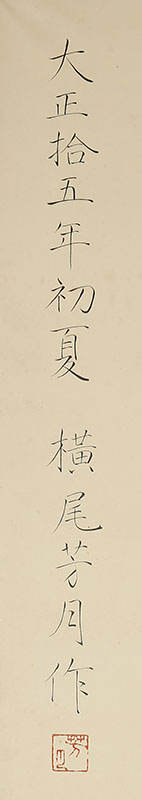 大正拾五年初夏　横尾芳月作
芳月